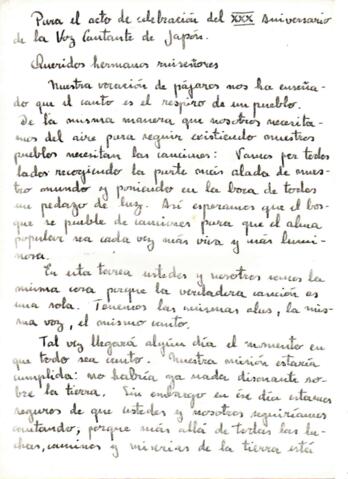 Para el acto de celebración del XXX Aniversario
de la Voz Cantante de Japón.
Queridos hermanos ruiseñores
Nuestra vocación de pájaros nos ha enseña-
do que el canto es el respiro de un pueblo.
De la misma manera que nosotros necesita-
mos del aire para seguir existiendo nuestros
pueblos necesitan las canciones: Vamos por todos
lados recogiendo la parte más alada de nues-
tro mundo y poniendo en la boca de todos
un pedazo de luz. Así esperamos que el bos-
que se pueble de canciones para que el alma
popular sea cada vez más viva y más lumi-
nosa.
En esta tarea ustedes y nosotros somos la
misma cosa porque la verdadera canción es
una sola. Tenemos las mismas alas, la mis-
ma voz, el mismo canto.
Tal vez llegará algún día el momento en
que todo sea canto. Nuestra misión estaría
cumplida: no habría ya nada disonante so-
bre la tierra. Sin embargo en ese día estamos
seguros de que ustedes y nosotros seguiríamos
cantando, porque más allá de todas las lu-
chas, caminos y miserias de la tierra está